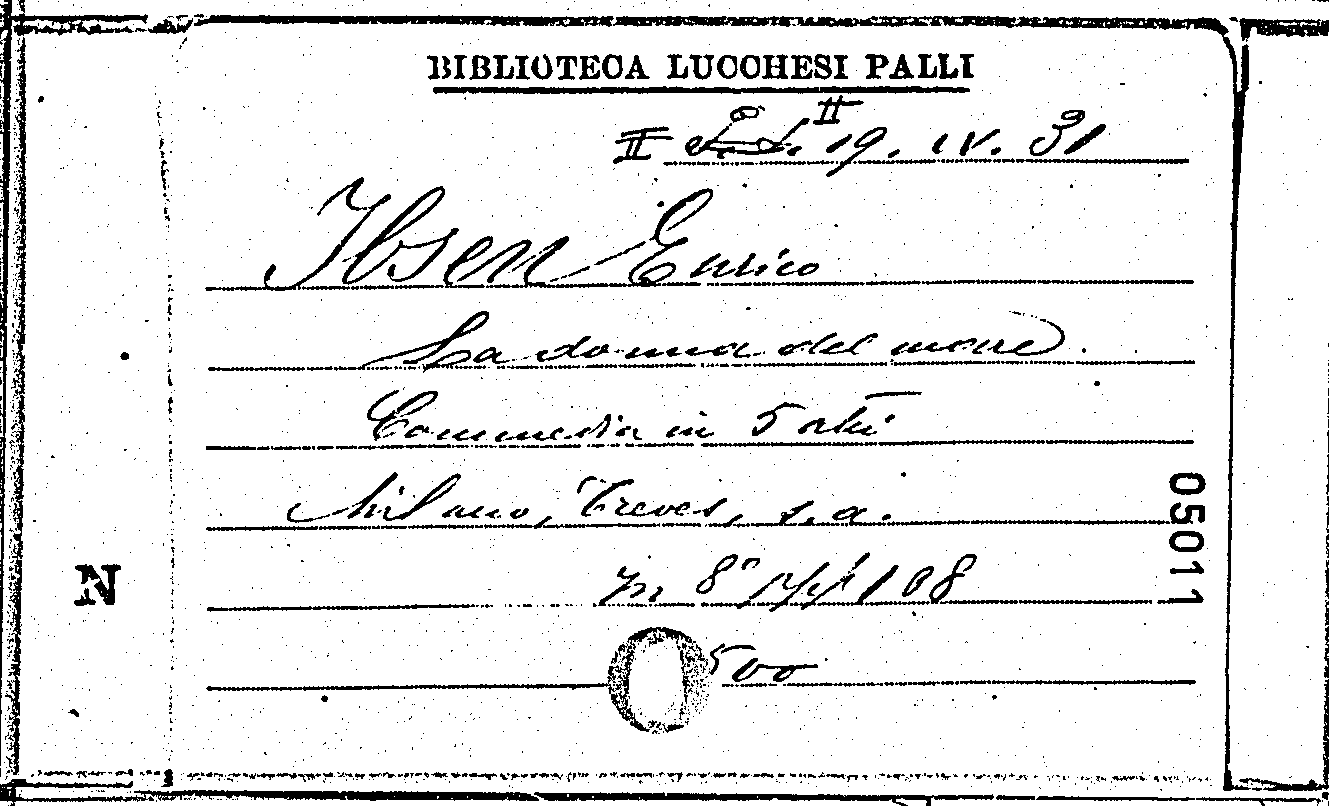 BIBLIOTECA LUCCHESI PALLI
II II 19. IV. 31
Ibsen Enrico
La donna del mare.
Commedia in 5 atti
Milano, Treves, s. a.
in 8° pp 108
500
N
05011